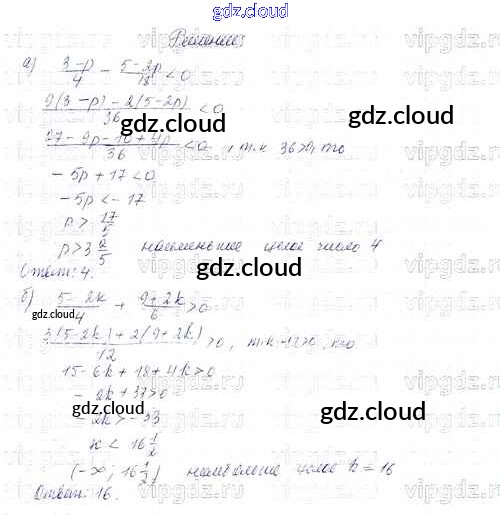 gdz.cloud
Решение:
а) (3-p)/4 - (5-2p)/18 < 0
(9(3-p) - 2(5-2p))/36 < 0
(27 - 9p - 10 + 4p)/36 < 0, т.к 36>0, то
- 5p + 17 < 0
- 5p < - 17
p > 17/5
p > 3 2/5 наименьшее целое число 4
Ответ: 4.
б) (5-2k)/4 + (9+2k)/6 > 0
(3(5-2k) + 2(9+2k))/12 > 0, т.к 12>0, то
15 - 6k + 18 + 4k > 0
- 2k + 33 > 0
2k > - 33
k < 16 1/2
(-∞; 16 1/2) наибольшее целое k = 16
Ответ: 16.
gdz.cloud
gdz.cloud
gdz.cloud
gdz.cloud
gdz.cloud
gdz.cloud